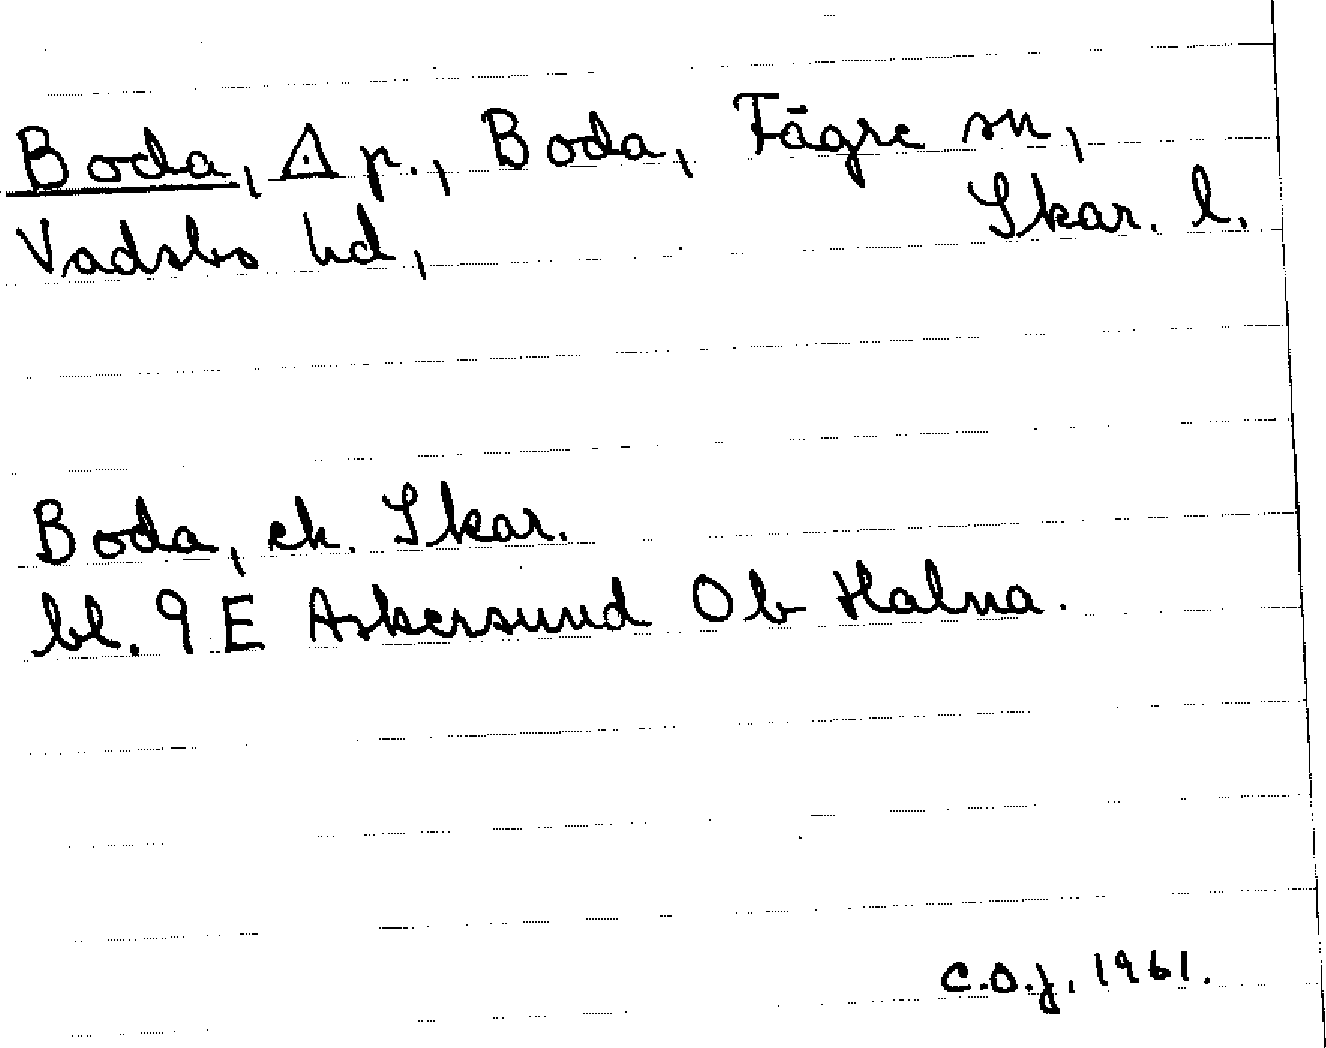 Boda, △ p., Boda, Fägre sn,
Vadsbo hd, Skar. l.
Boda, ek. Skar.
bl. 9E Askersund Ob Halna.
C.O.J. 1961.